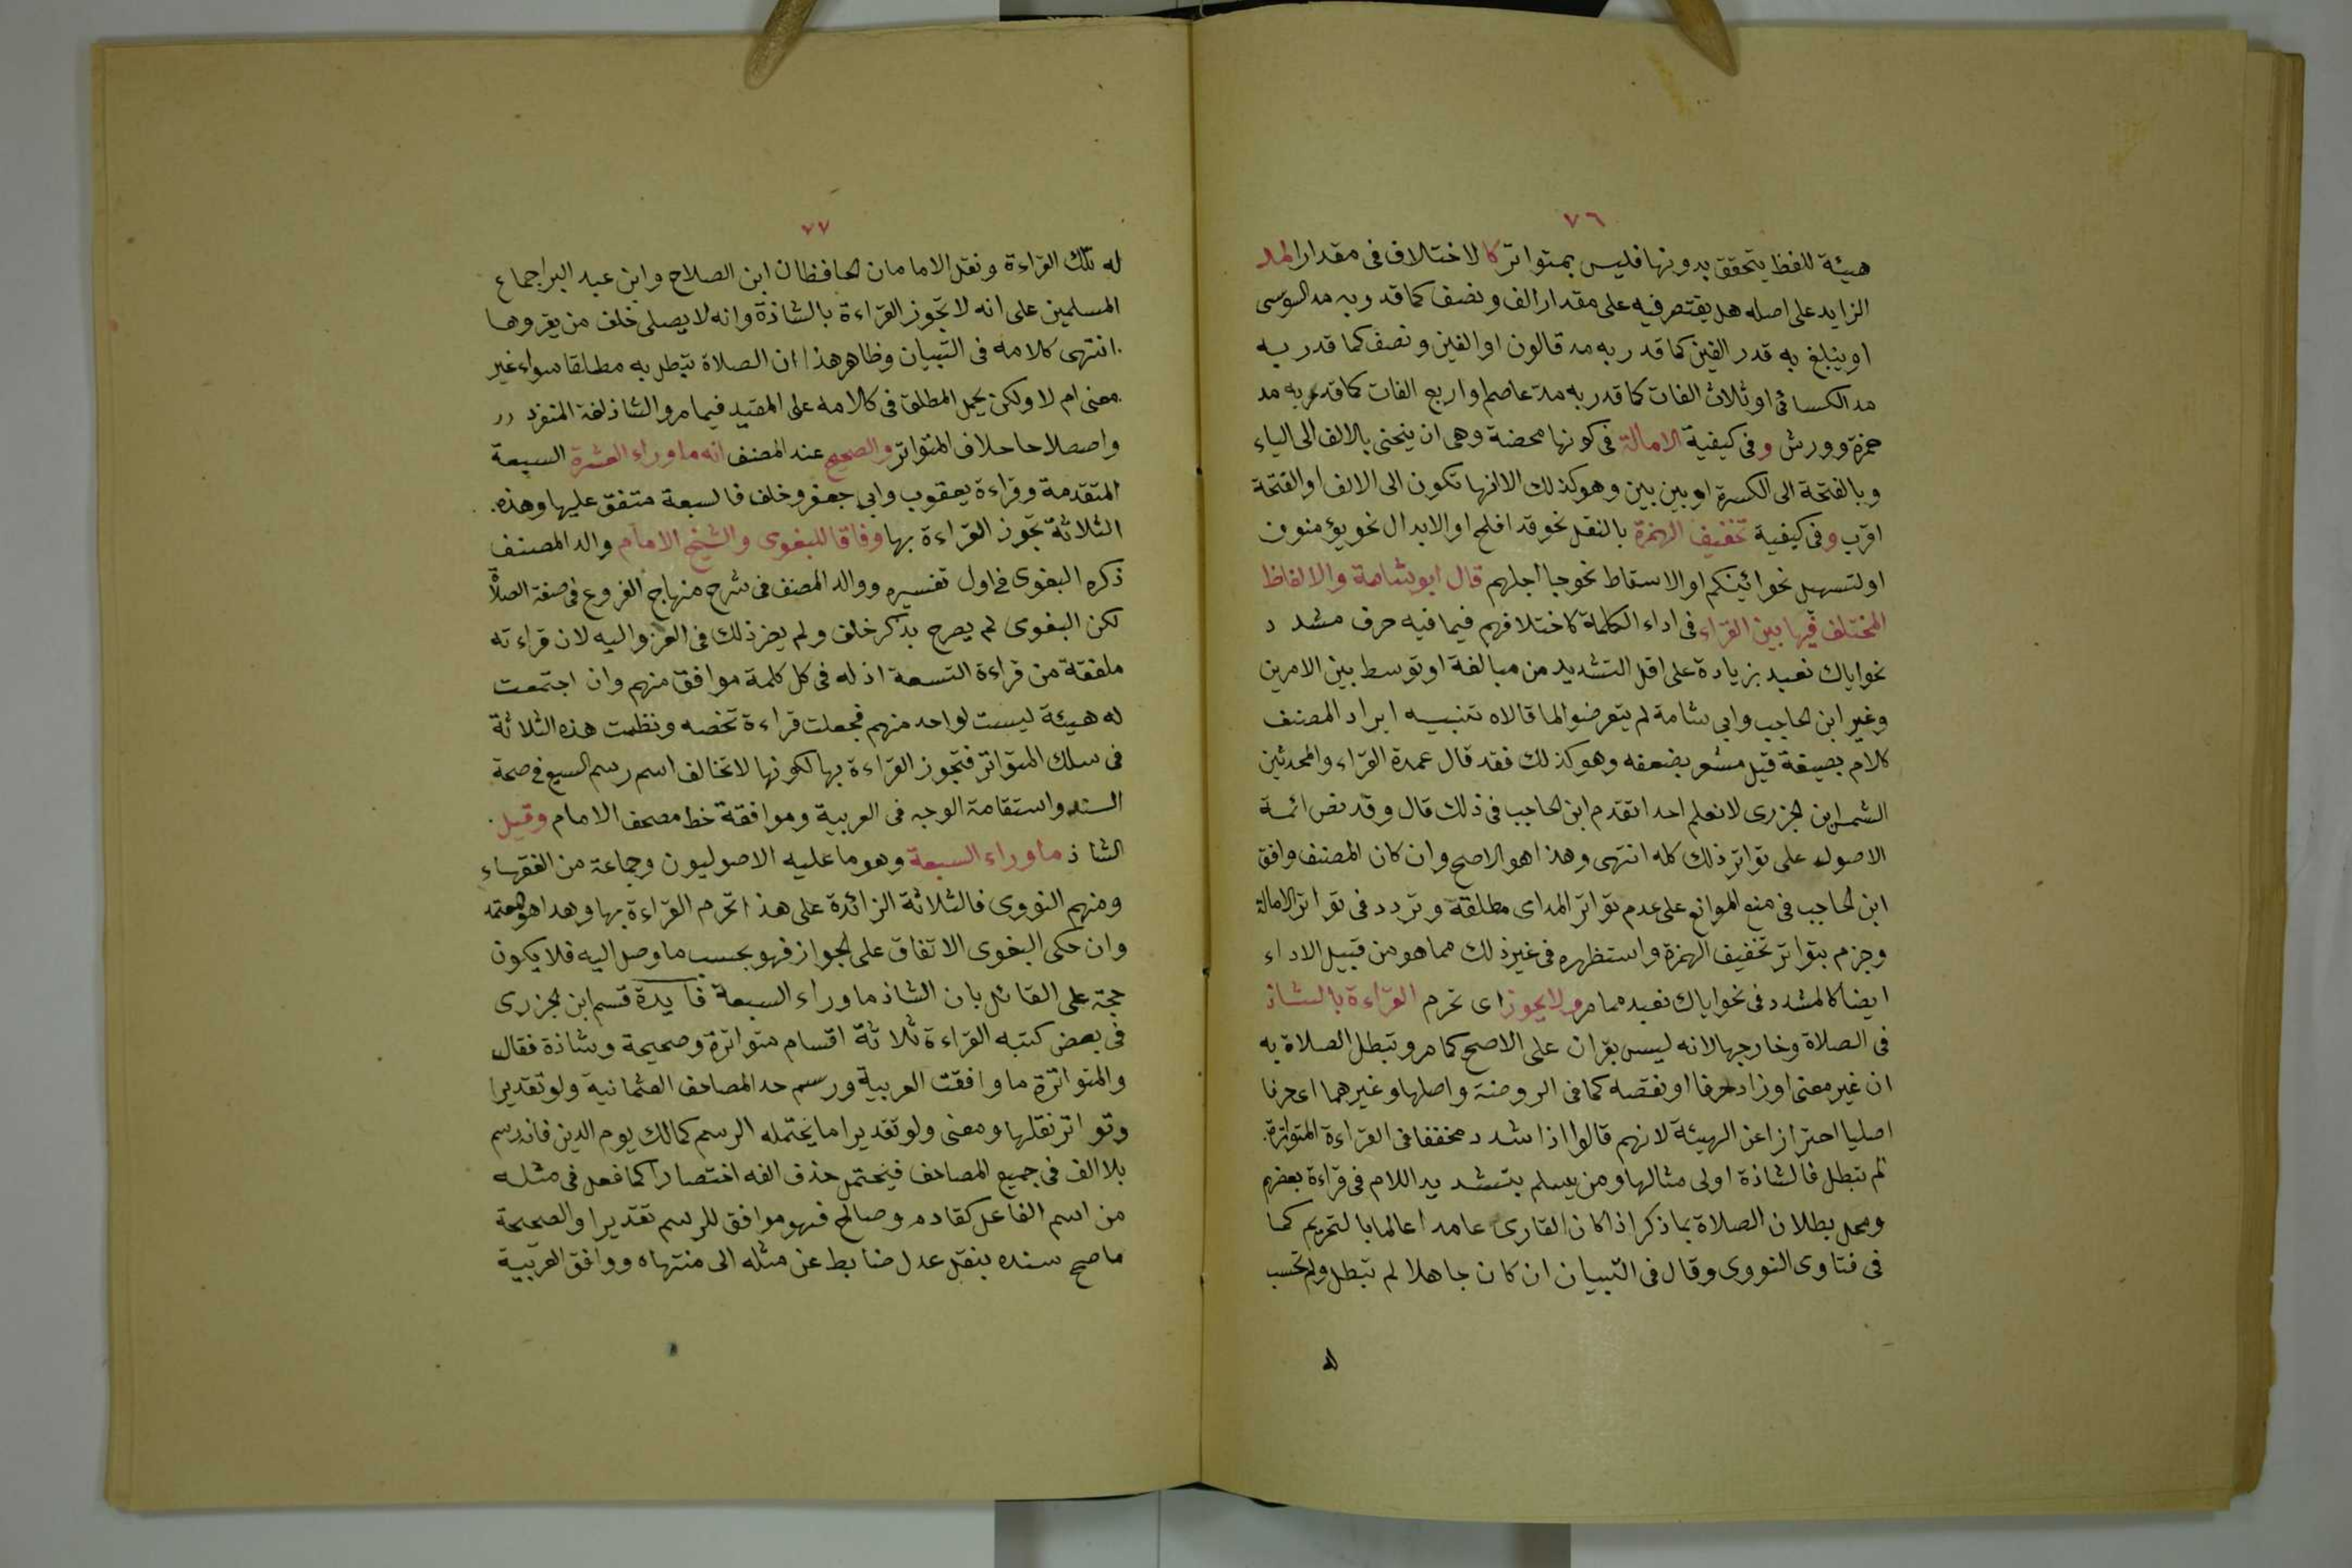 ٧٦
هيئة للفظ يتحقق بدونها فليس بمتواتر كالاختلاف فى مقدار المد
الزايد على اصله هل يقتصر فيه على مقدار الف ونصف كما قدر به مد السوسى
او يبلغ به قدر الفين كما قدر به مد قالون او الفين ونصف كما قدر به
مد الكسائى او ثلاث الفات كما قدر به مد عاصم او اربع الفات كما قدر به مد
حمزة وورش وفى كيفية الامالة فى كونها محضة وهى ان ينحنى بالالف الى الياء
وبالفتحة الى الكسرة او بين بين وهو كذلك الا انها تكون الى الالف او الفتحة
اقرب وفى كيفية تخفيف الهمزة بالنقل نحو قد افلح او الابدال نحو يؤمنون
او لتسهيل نحو ائينكم او الاسقاط نحو جا اجلهم قال ابو شامة والالفاظ
المختلف فيها بين القراء فى اداء الكلمة كاختلافهم فيما فيه حرف مشدد
نحو اياك نعبد بزيادة على اقل التشديد من مبالغة او توسط بين الامرين
وغير ابن الحاجب وابى شامة لم يتعرضوا لما قالاه تنبيه ايراد المصنف
كلام بصيغة قيل مشعر بضعفه وهو كذلك فقد قال عمدة القراء والمحدثين
الشمس ابن الجزرى لا نعلم احدا تقدم ابن الحاجب فى ذلك قال وقد نص ائمة
الاصول على تواتر ذلك كله انتهى وهذا هو الاصح وان كان المصنف وافق
ابن الحاجب فى منع الموانع على عدم تواتر المد اى مطلقة وتردد فى تواتر الامالة
وجزم بتواتر تخفيف الهمزة واستظهره فى غير ذلك مما هو من قبيل الاداء
ايضا كالمشدد فى نحو اياك نعبد مما مر ولا يجوز اى تحرم القراءة بالشاذ
فى الصلاة وخارجها لانه ليس بقران على الاصح كما مر وتبطل الصلاة به
ان غير معنى او زاد حرفا او نقصه كما فى الروضة واصلها وغيرهما اى حرفا
اصليا احترازا عن الهيئة لانهم قالوا اذا شدد مخففا فى القراءة المتواترة
لم تبطل فالشاذة اولى مثالها ومن يسلم بتشديد اللام فى قراءة بعضهم
ومحل بطلان الصلاة بما ذكر اذا كان القارى عامدا عالما بالتحريم كما
فى فتاوى النووى وقال فى التبيان ان كان جاهلا لم تبطل ولم تحسب
له
٧٧
له تلك القراءة ونقل الامامان الحافظان ابن الصلاح وابن عبد البر اجماع
المسلمين على انه لا تجوز القراءة بالشاذة وانه لا يصلى خلف من يقروها
انتهى كلامه فى التبيان وظاهر هذا ان الصلاة تبطل به مطلقا سواء غير
معنى ام لا ولكن يحمل المطلق فى كلامه على المقيد فيما مر والشاذ لغة المنفرد
واصطلاحا خلاف المتواتر والصحيح عند المصنف انه ما وراء العشرة السبعة
المتقدمة وقراءة يعقوب وابى جعفر وخلف فالسبعة متفق عليها وهذه
الثلاثة تجوز القراءة بها وفاقا للبغوى والشيخ الامام والد المصنف
ذكره البغوى فى اول تفسيره ووالد المصنف فى شرح منهاج الفروع فى صفة الصلاة
لكن البغوى لم يصرح بذكر خلف ولم يضر ذلك فى العزو اليه لان قراءته
ملفقة من قراءة التسعة اذ له فى كل كلمة موافق منهم وان اجتمعت
له هيئة ليست لواحد منهم فجعلت قراءة تخصه ونظمت هذه الثلاثة
فى سلك المتواتر فتجوز القراءة بها لكونها لا تخالف اسم رسم السبع فى صحة
السند واستقامة الوجه فى العربية وموافقة خط مصحف الامام وقيل
الشاذ ما وراء السبعة وهو ما عليه الاصوليون وجماعة من الفقهاء
ومنهم النووى فالثلاثة الزائدة على هذا تحرم القراءة بها وهذا هو المعتمد
وان حكى البغوى الاتفاق على الجواز فهو بحسب ما وصل اليه فلا يكون
حجة على القائل بان الشاذ ما وراء السبعة فايدة قسم ابن الجزرى
فى بعض كتبه القراءة ثلاثة اقسام متواترة وصحيحة وشاذة فقال
والمتواترة ما وافقت العربية ورسم حد المصاحف العثمانية ولو تقديرا
وتواتر نقلها ومعنى ولو تقديرا ما يحتمله الرسم كمالك يوم الدين فانه رسم
بلا الف فى جميع المصاحف فيحتمل حذف الفه اختصارا كما فعل فى مثله
من اسم الفاعل كقادم وصالح فهو موافق للرسم تقديرا والصحيحة
ما صح سنده بنقل عدل ضابط عن مثله الى منتهاه ووافق العربية